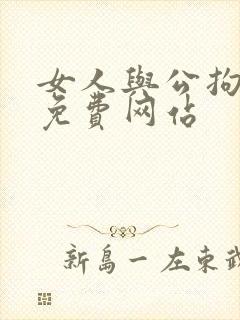 女人與公拘
免費网佔
新島一左東武